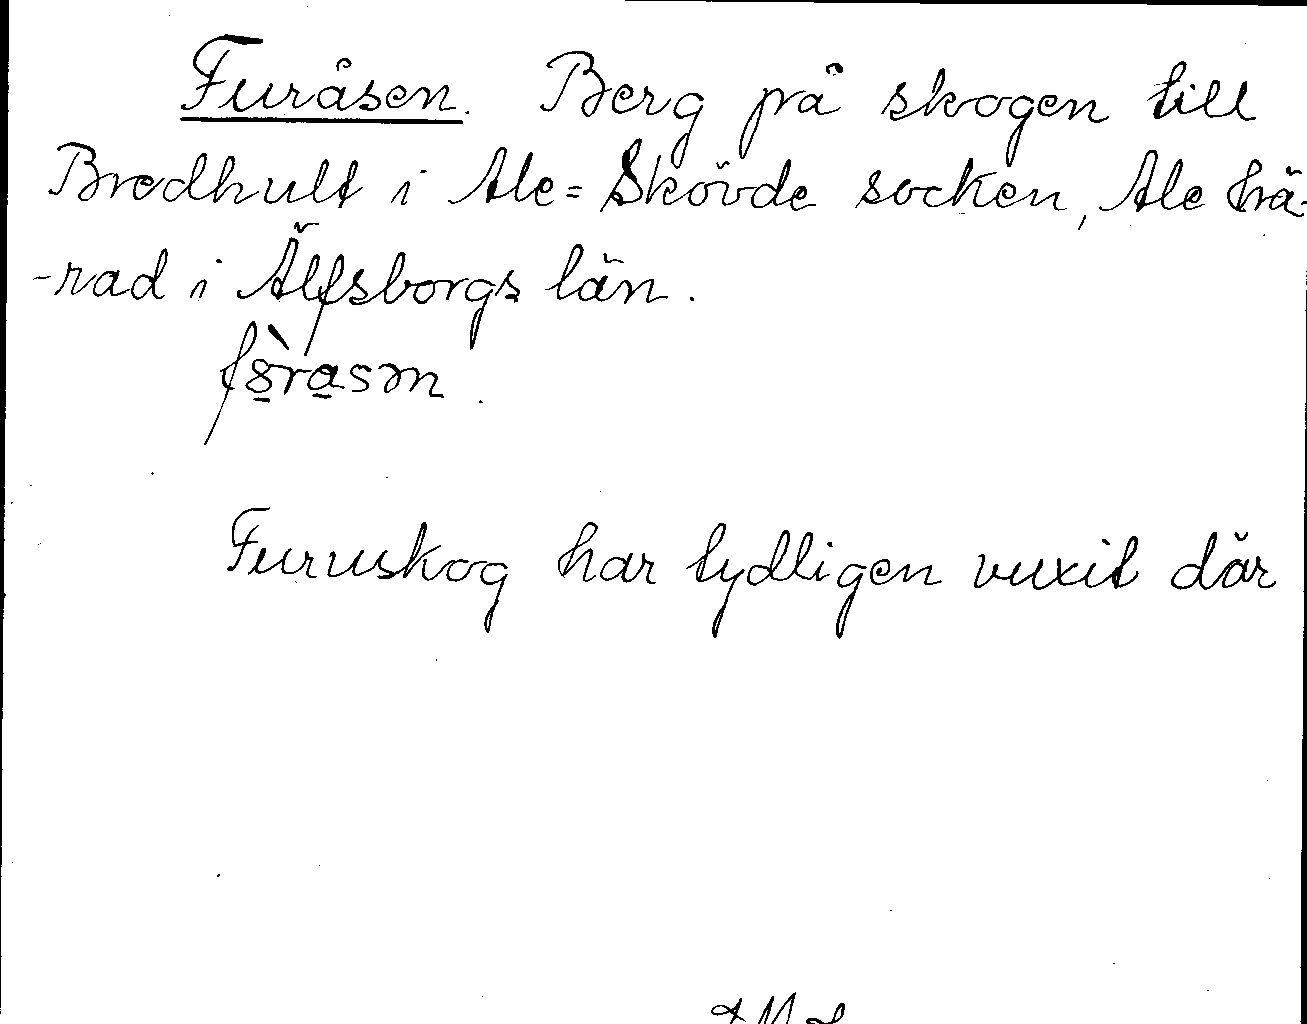 Furåsen. Berg på skogen till
Bredhult i Ale=Skövde socken, Ale hä-
-rad i Älfsborgs län.
Furuskog har tydligen vuxit där